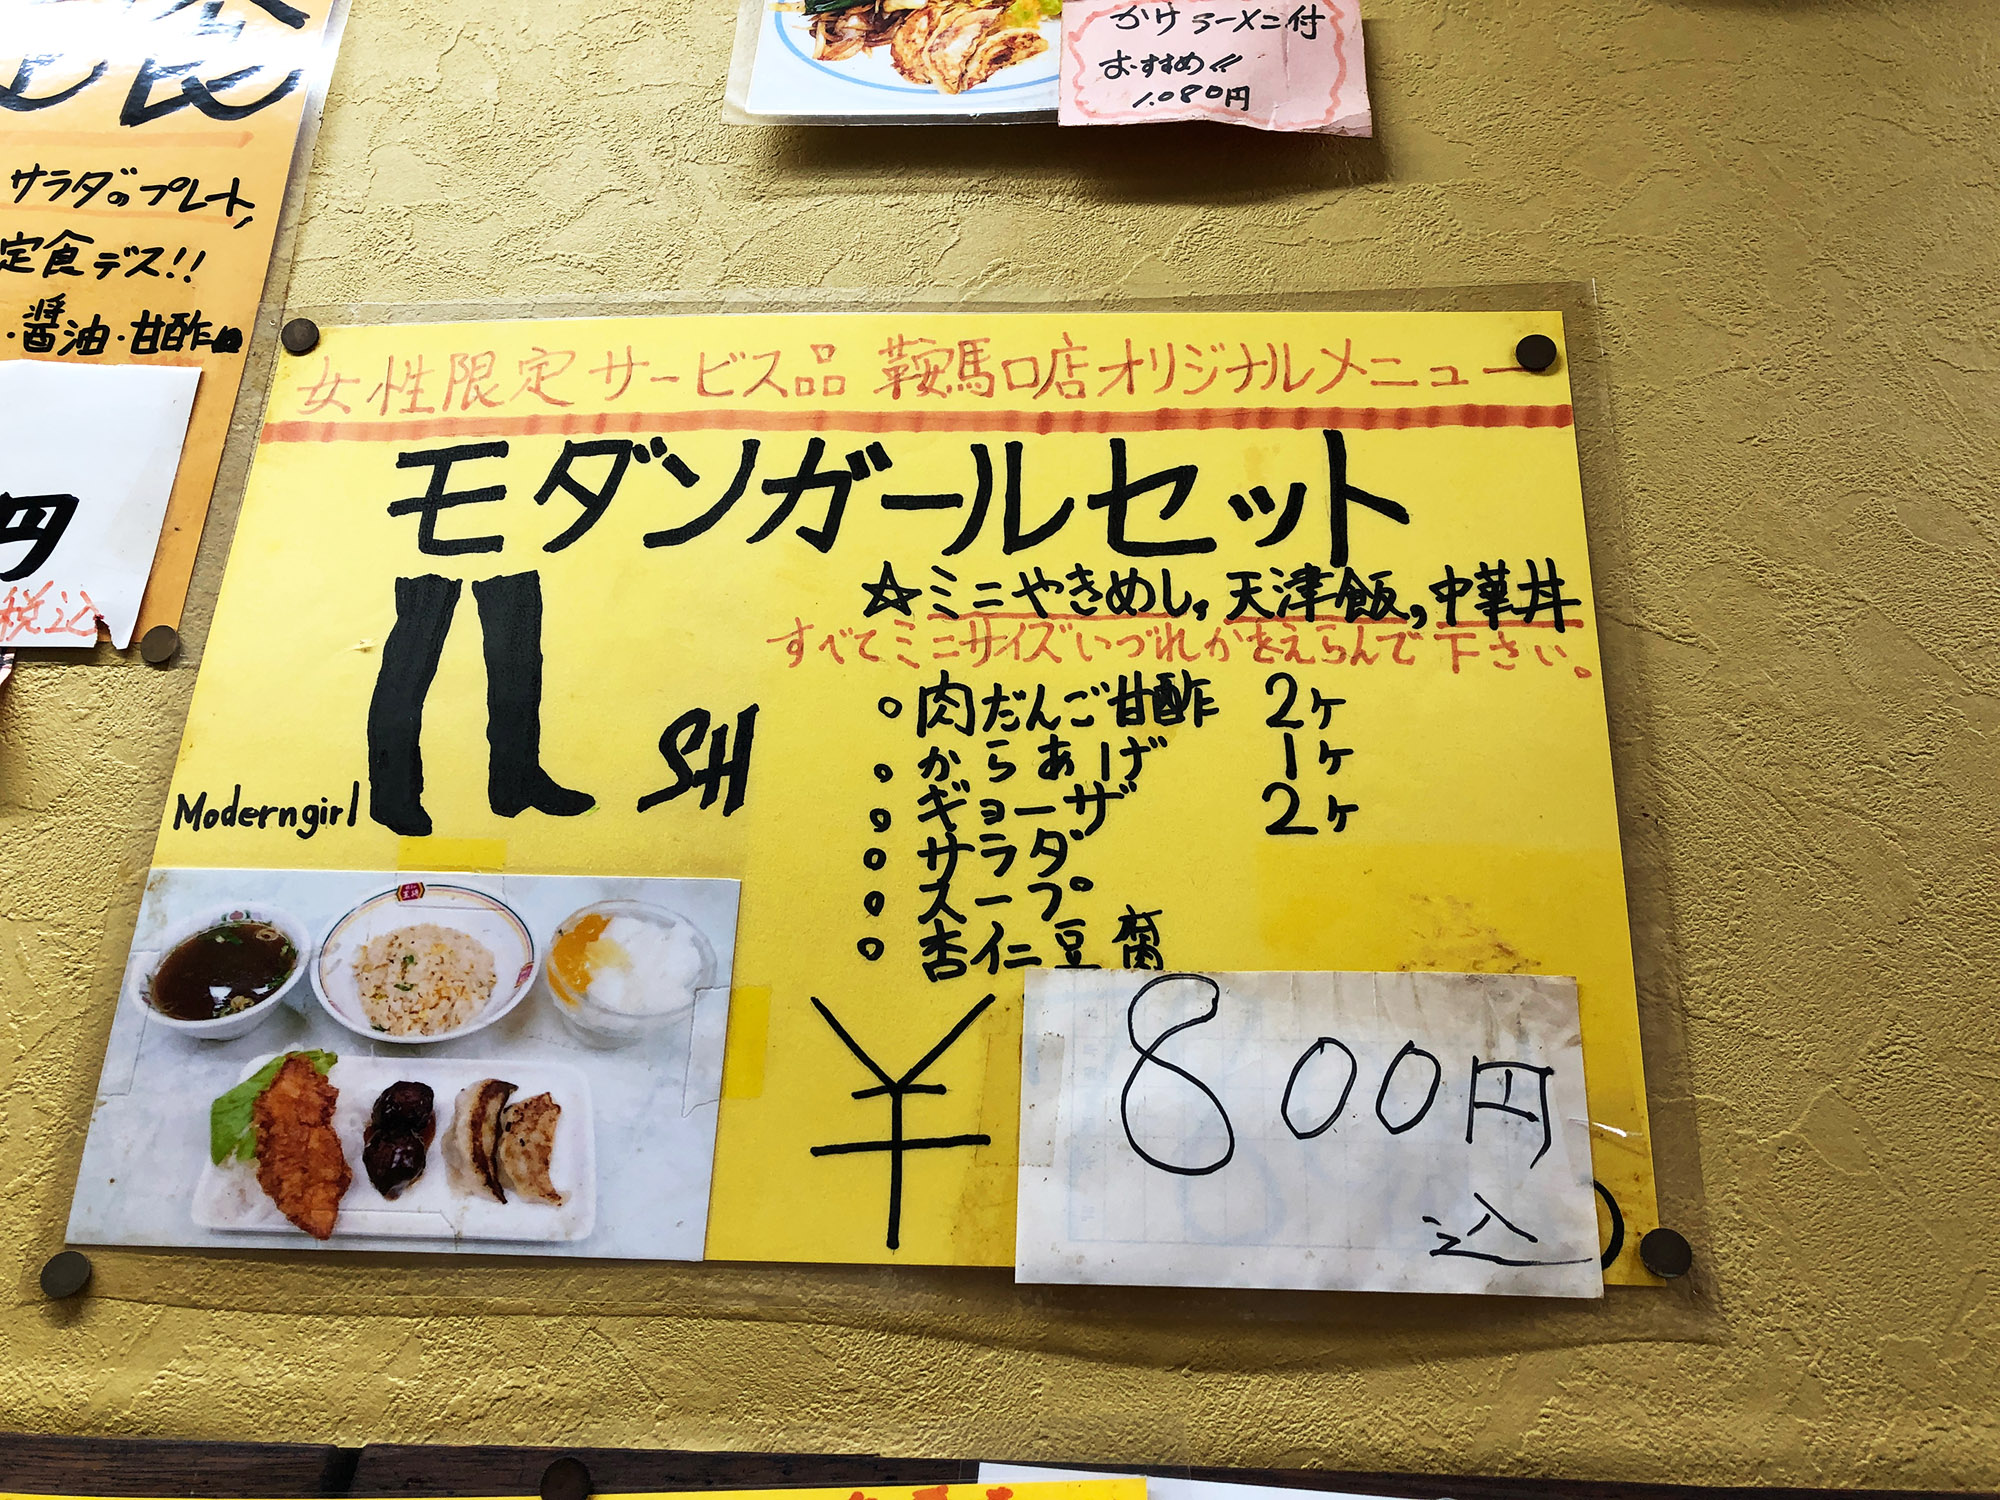 かけラーメン付
おすすめ!!
1.080円
サラダのプレート,
定食デス!!
・醤油・甘酢
円
税込
女性限定サービス品 鞍馬口店オリジナルメニュー
モダンガールセット
☆ミニやきめし,天津飯,中華丼
すべてミニサイズいづれかをえらんで下さい。
○肉だんご甘酢 2ヶ
○からあげ 1ヶ
○ギョーザ 2ヶ
○サラダ
○スープ
○杏仁豆腐
SH
Moderngirl
¥800円
込